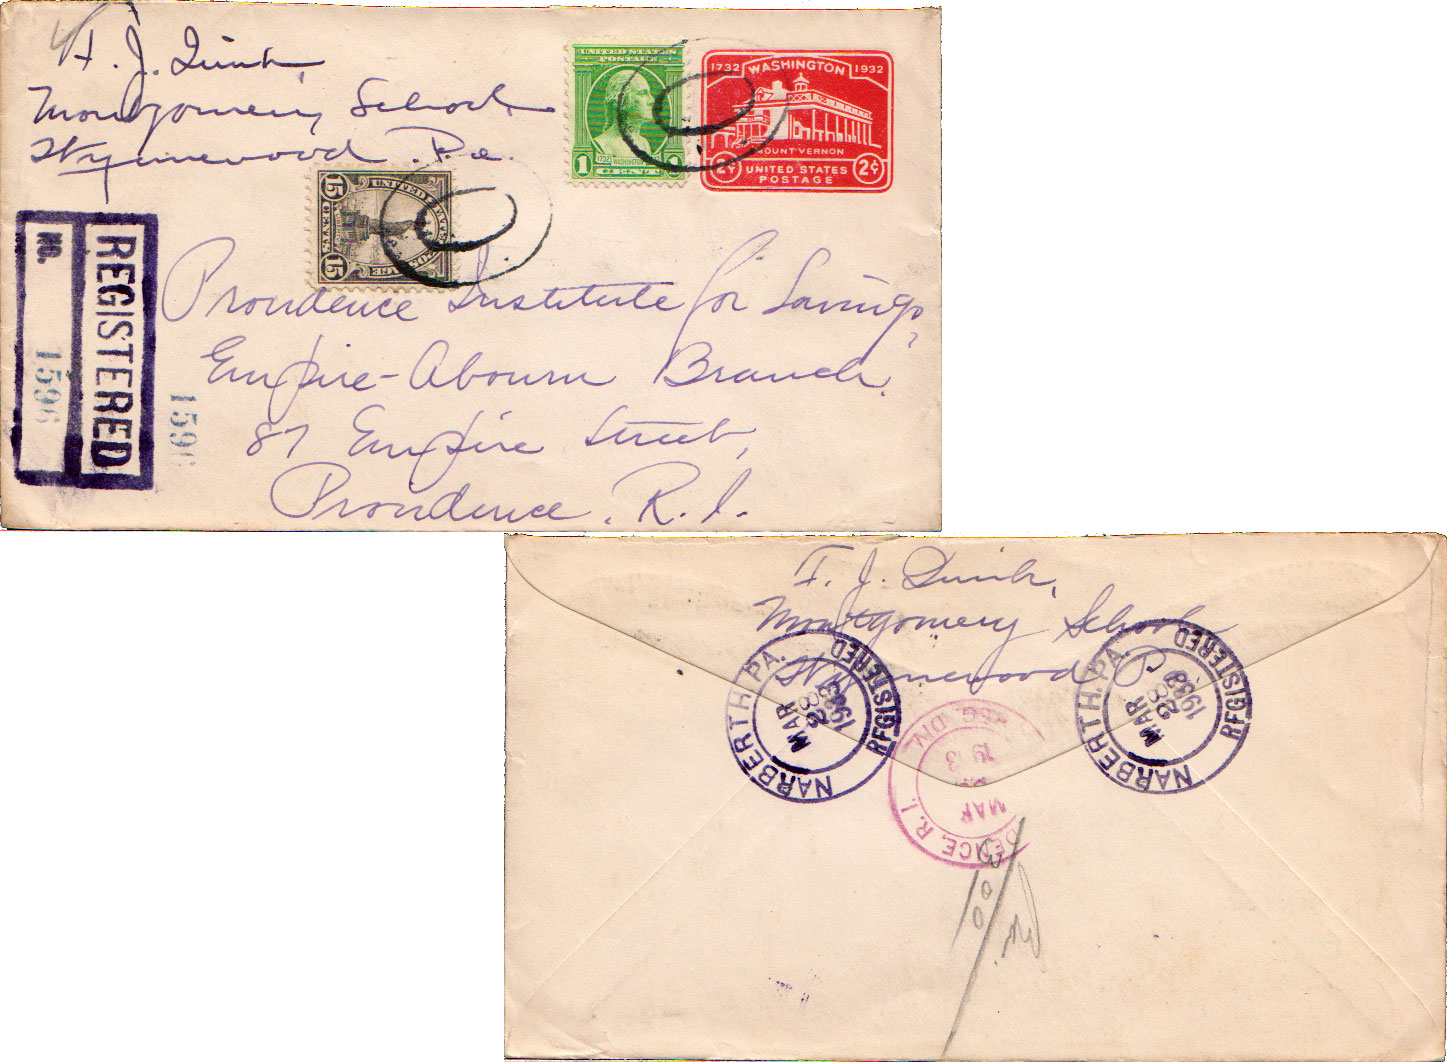 J.
Montgomery School,
Wynnewood Pa.
UNITED STATES
POSTAGE
1
1732 WASHINGTON
1
CENT
1732 WASHINGTON 1932
MOUNT VERNON
2¢ UNITED STATES 2¢
POSTAGE
15 15
REGISTERED
NO. 1596
159
Providence Institute for Savings,
Empire-Aborn Branch,
87 Empire Street,
Providence, R.I.
J.
Montgomery School
Wynnewood P
NARBERTH, PA.
MAR
28
1933
REGISTERED
NARBERTH, PA.
MAR
28
1933
REGISTERED
DENCE, R.I.
REG. DIV.
MAR